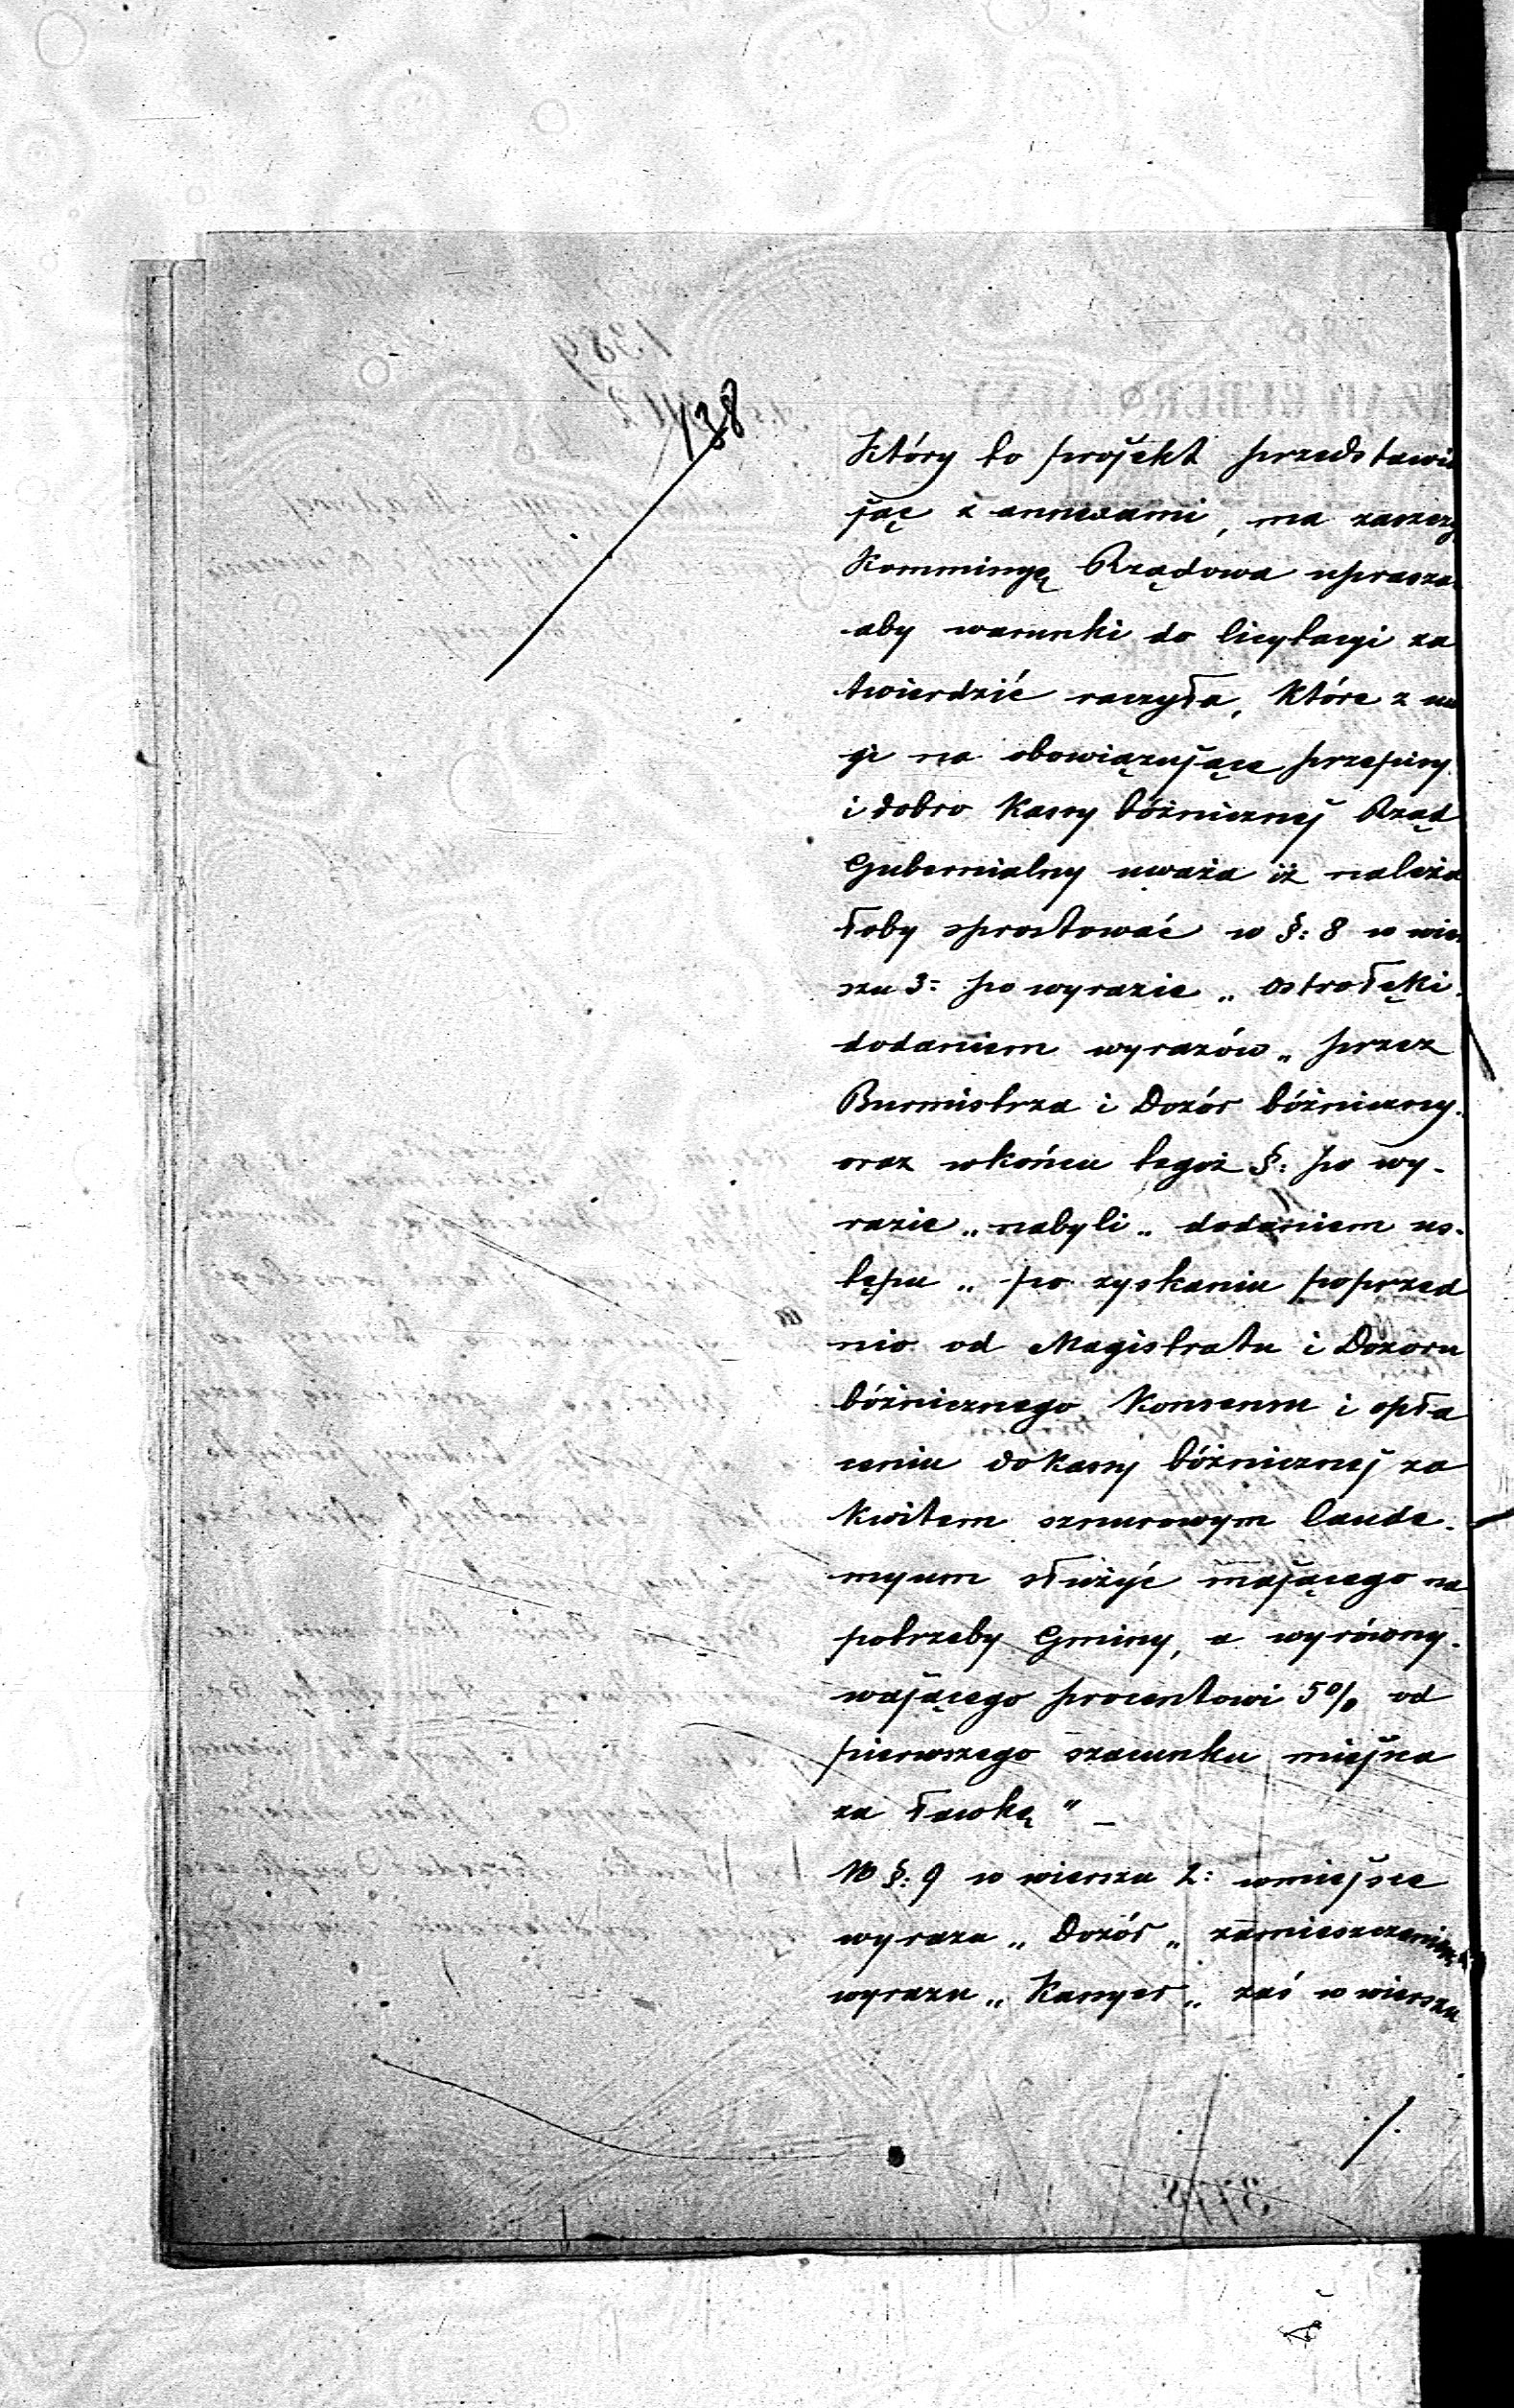 138
Który to projekt przedstawia
jąc z annexami, ma zaszczy
Kommissyę Rządowa uprasza
aby warunki do licytacyi za
twierdzić raczyła, które z uw
gi na obowiązujące przepisy
i dobro Kassy bóżnicznej Rząd
Gubernialny uważa iż należa
łoby sprostować w §: 8 w wier
szu 3: po wyrazie „ Ostrołęki.
dodaniem wyrazów „ przez
Burmistrza i Dozór bóżniczny.
oraz wkońcu tegoż §: po wy-
razie „ nabyli „ dodaniem us-
tępu „ po zyskaniu poprzed
nio od Magistratu i Dozoru
bóżnicznego Konsensu i opła
ceniu do Kassy bóżnicznej za
Kwitem sznurowym laude-
myum służyć mającego na
potrzeby Gminy, a wyrówny-
wającego procentowi 5% od
pierwszego szacunku miejsca
za ławkę " _
W §: 9 w wierszu 2: wmiejsce
wyrazu „ Dozór „ zamieszczeniem
wyrazu „ Kassyer „ zaś w wierszu
./.